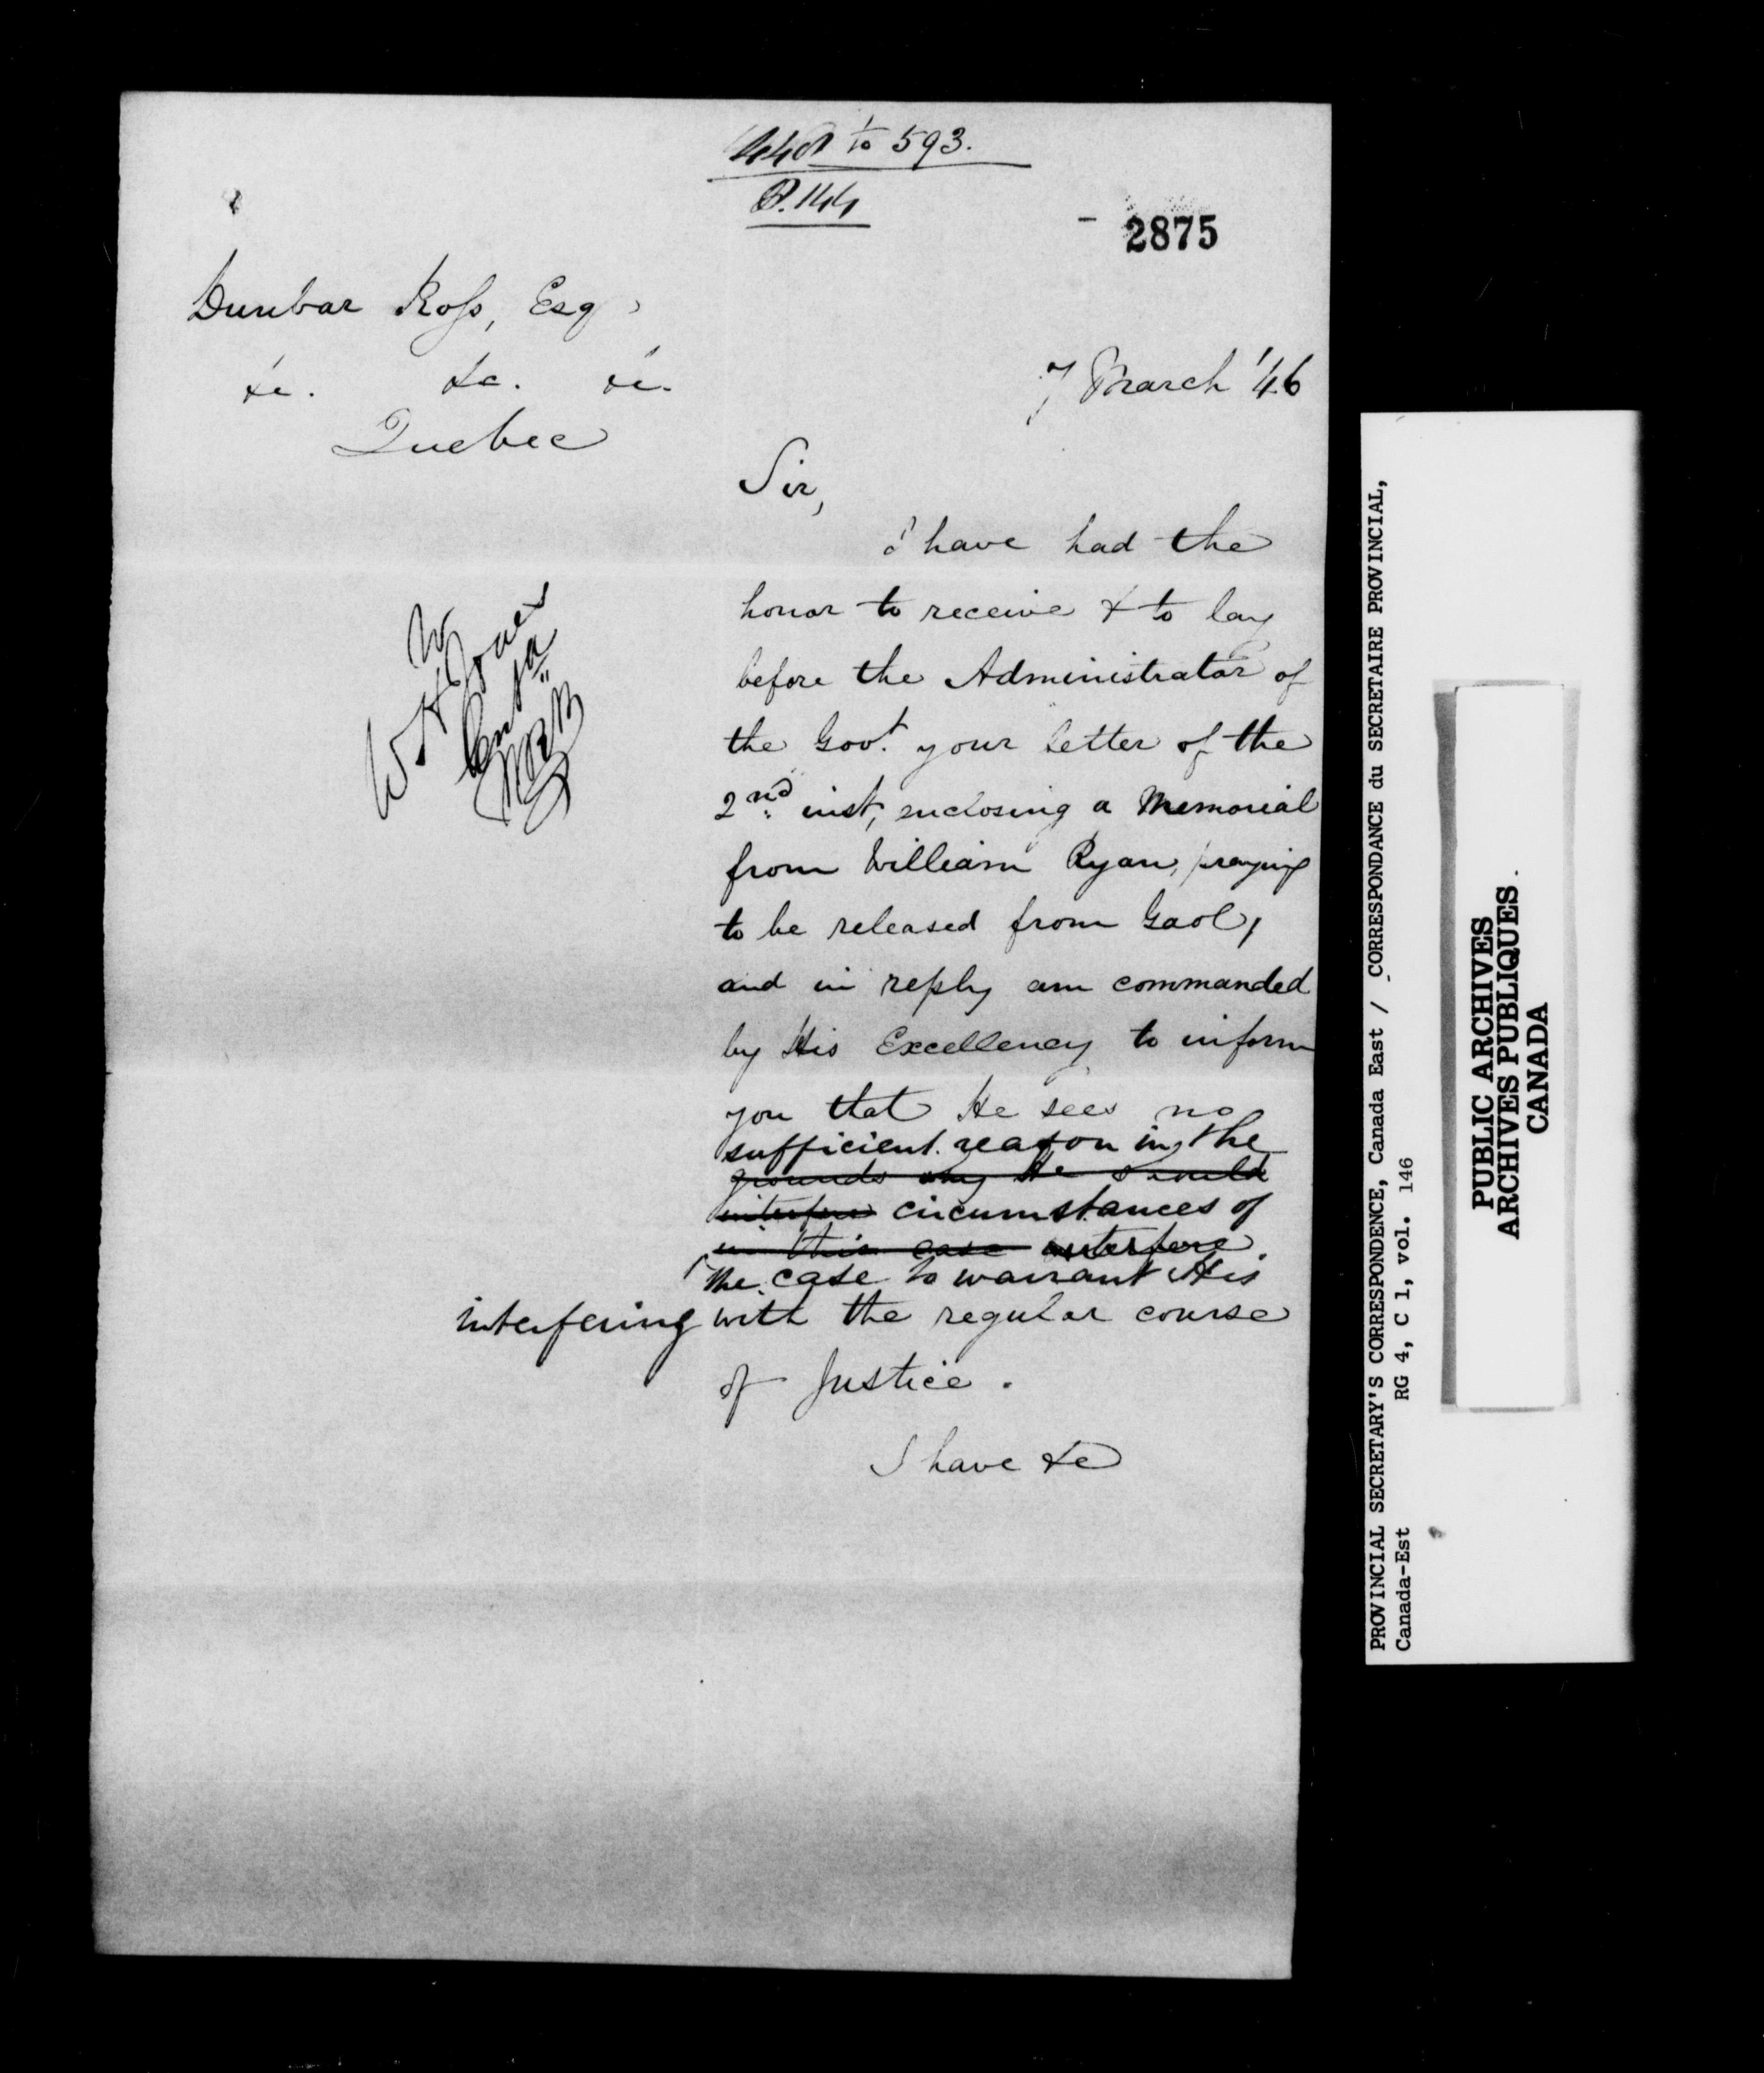 to 593.
P. 144
2875
Dunbar Ross, Esq
&c. &c. &c.
Quebec
7 March '46
Sir,
I have had the
honor to receive & to lay
before the Administrator of
the Govt. your letter of the
2nd inst, enclosing a Memorial
from William Ryan, praying
to be released from Gaol,
and in reply am commanded
by His Excellency to inform
you that He sees no
sufficient reason in the
grounds why He should
interfere circumstances of
in this case interfere
the case to warrant His
interfering with the regular course
of Justice.
I have &c
PROVINCIAL SECRETARY'S CORRESPONDENCE, Canada East / CORRESPONDANCE du SECRETAIRE PROVINCIAL,
Canada-Est RG 4, C 1, vol. 146
PUBLIC ARCHIVES
ARCHIVES PUBLIQUES
CANADA